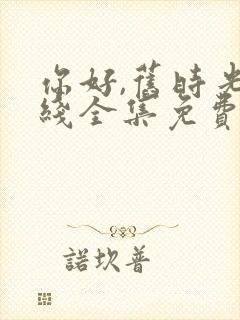 你好,舊時光
綫全集免費
諾坎普